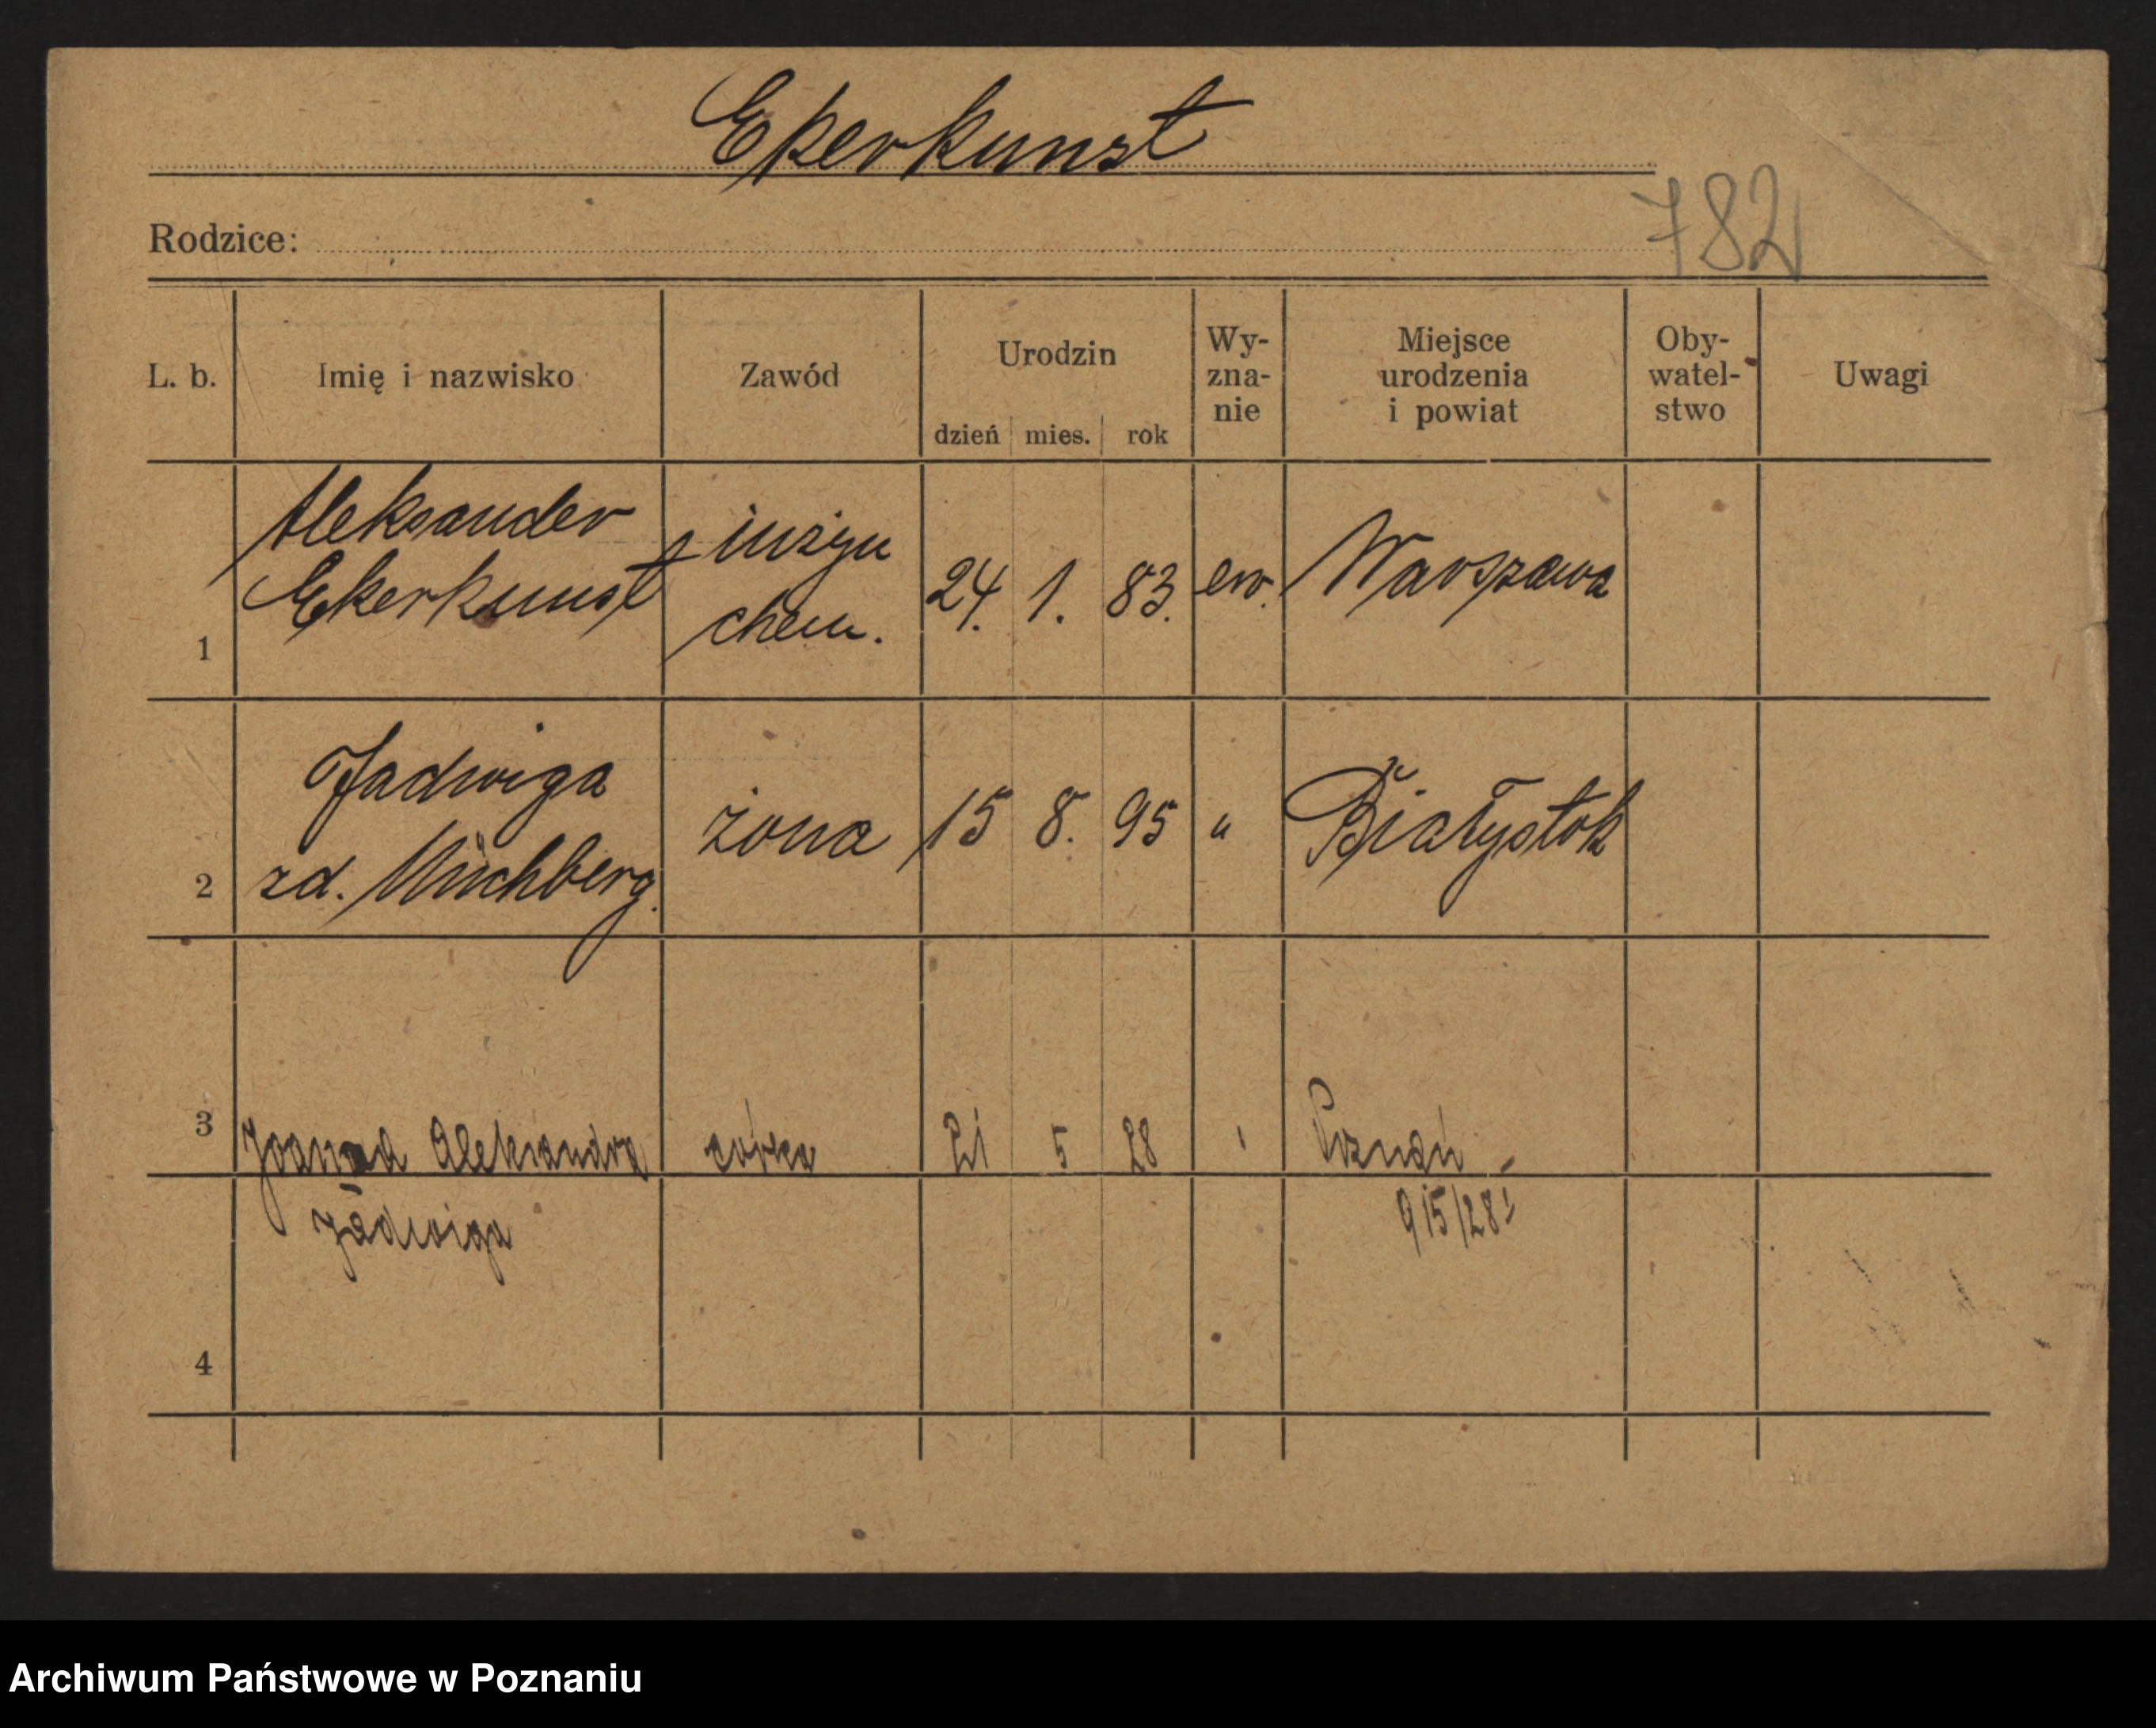 Ekerkunst
782
Rodzice:
L. b. Imię i nazwisko Zawód Urodzin dzień mies. rok Wy-zna-nie Miejsce urodzenia i powiat Oby-watel-stwo Uwagi
Aleksander inżyn
1 Ekerkunst chem. 24. 1. 83. ew. Warszawa
Jadwiga
2 zd. Münchberg. żona 15 8. 95 " Białystok
3 Joanna Aleksandra córka 21 5 28 Poznań
Jadwiga 915/28
4
Archiwum Państwowe w Poznaniu